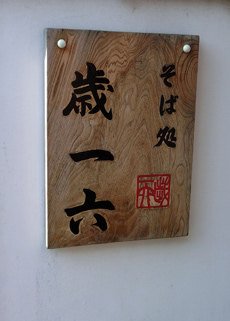 そば処
歳一六